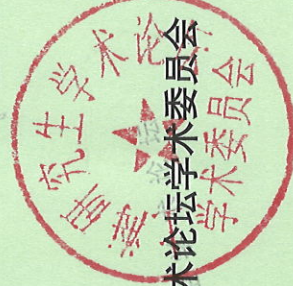 研究生学术论
学术委员会
术论坛学术委员会